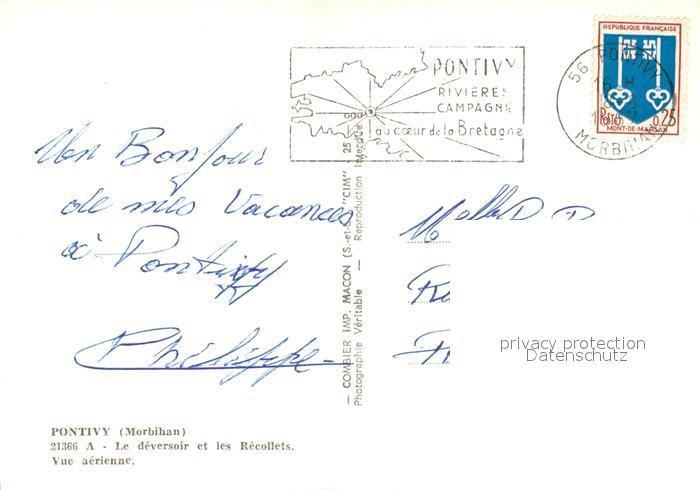 PONTIVY
RIVIÈRES
CAMPAGNE
au cœur de la Bretagne
56 PONTIVY
MORBIHAN
REPUBLIQUE FRANÇAISE
0,25
MONT-DE-MARSAN
Un Bonjour
de mes Vacances
à Pontivy
Philippe
— COMBIER IMP. MACON (S.-et-L.) "CIM"
Photographie Véritable — Reproduction Interdite
privacy protection
Datenschutz
PONTIVY (Morbihan)
21366 A - Le déversoir et les Récollets.
Vue aérienne.